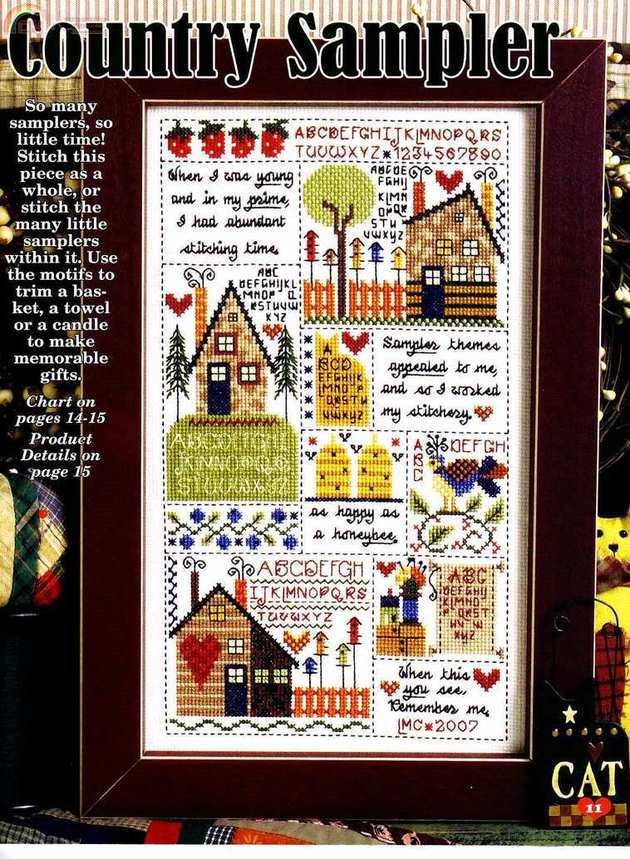 Country Sampler
So many
samplers, so
little time!
Stitch this
piece as a
whole, or
stitch the
many little
samplers
within it. Use
the motifs to
trim a bas-
ket, a towel
or a candle
to make
memorable
gifts.
Chart on
pages 14-15
Product
Details on
page 15
ABCDEFGHIJKLMNOPQRS
TUVWXYZ * 1234567890
When I was young
and in my prime,
I had abundant
stitching time.
ABCDE
FGHIJ
KLMN
OPQR
STU
VWXYZ
ABC
DEFGHIJKL
MNOP Q
RSTUVW
XYZ
ABCDEFGH
IJKLMNOPQ
RSTUVWXYZ
A
BCD
EFGHIJK
LMNOP
QRST
UVWXYZ
Sampler themes
appealed to me,
and so I worked
my stitchery.
as happy as
a honeybee.
ABCDEFGH
ABCDEFGH
IJKLMNOPQRS
TUVWXYZ
ABC
DEFGHIJ
KLMN
OPQRST
UVW
XYZ
When this
you see,
Remember me,
LMC * 2007
CAT
11